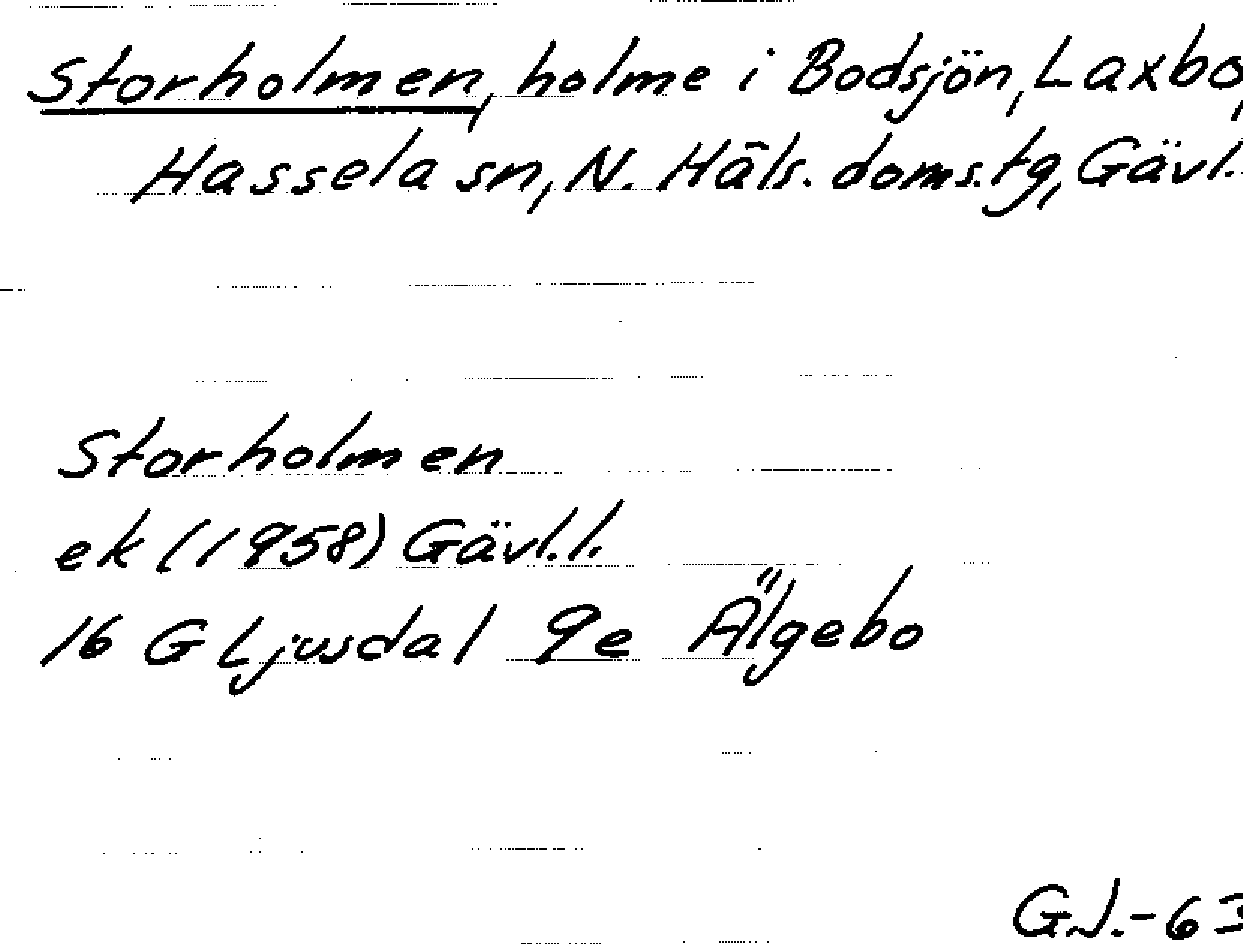 Storholmen, holme i Bodsjön, Laxbo,
Hassela sn, N. Häls. doms.tg, Gävl.
Storholmen
ek (1958) Gävl.l.
16 G Ljusdal 9e Älgebo
G.J.-63